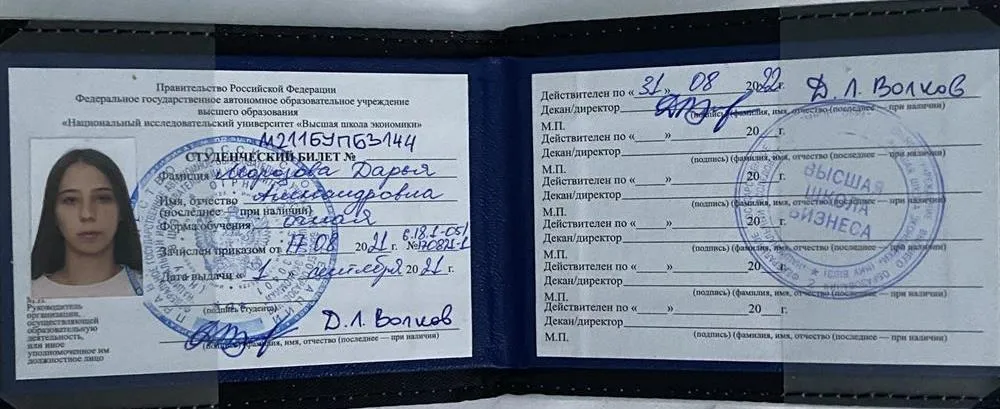 Правительство Российской Федерации
Федеральное государственное автономное образовательное учреждение
высшего образования
«Национальный исследовательский университет «Высшая школа экономики»
М211БУПБЗ144
СТУДЕНЧЕСКИЙ БИЛЕТ №
Фамилия Морозова Дарья
Имя, отчество Александровна
(последнее — при наличии)
Форма обучения очная
Зачислен приказом от 17.08 2021 г. № 6.18.1-05/170821-1
Дата выдачи « 1 » сентября 2021 г.
(подпись студента)
Д.Л. Волков
(подпись) (фамилия, имя, отчество (последнее — при наличии)
М.П.
Руководитель
организации,
осуществляющей
образовательную
деятельность,
или иное
уполномоченное им
должностное лицо
Действителен по « 31 » 08 2022 г. Д.Л. Волков
Декан/директор
(подпись) (фамилия, имя, отчество (последнее — при наличии)
М.П.
Действителен по « » 20 г.
Декан/директор
(подпись) (фамилия, имя, отчество (последнее — при наличии)
М.П.
Действителен по « » 20 г.
Декан/директор
(подпись) (фамилия, имя, отчество (последнее — при наличии)
М.П.
Действителен по « » 20 г.
Декан/директор
(подпись) (фамилия, имя, отчество (последнее — при наличии)
М.П.
Действителен по « » 20 г.
Декан/директор
(подпись) (фамилия, имя, отчество (последнее — при наличии)
М.П.
Действителен по « » 20 г.
Декан/директор
(подпись) (фамилия, имя, отчество (последнее — при наличии)
М.П.
ВЫСШАЯ
ШКОЛА
БИЗНЕСА